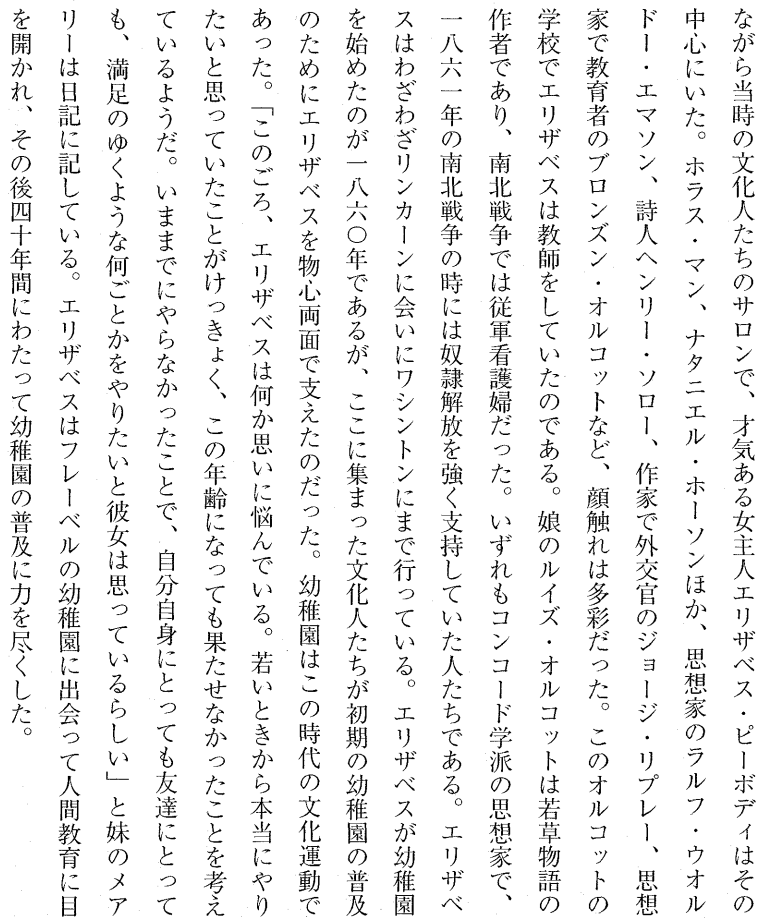 ながら当時の文化人たちのサロンで、才気ある女主人エリザベス・ピーボディはその
中心にいた。ホラス・マン、ナタニエル・ホーソンほか、思想家のラルフ・ウオル
ドー・エマソン、詩人ヘンリー・ソロー、作家で外交官のジョージ・リプレー、思想
家で教育者のブロンズン・オルコットなど、顔触れは多彩だった。このオルコットの
学校でエリザベスは教師をしていたのである。娘のルイズ・オルコットは若草物語の
作者であり、南北戦争では従軍看護婦だった。いずれもコンコード学派の思想家で、
一八六一年の南北戦争の時には奴隷解放を強く支持していた人たちである。エリザベ
スはわざわざリンカーンに会いにワシントンにまで行っている。エリザベスが幼稚園
を始めたのが一八六〇年であるが、ここに集まった文化人たちが初期の幼稚園の普及
のためにエリザベスを物心両面で支えたのだった。幼稚園はこの時代の文化運動で
あった。「このごろ、エリザベスは何か思いに悩んでいる。若いときから本当にやり
たいと思っていたことがけっきょく、この年齢になっても果たせなかったことを考え
ているようだ。いままでにやらなかったことで、自分自身にとっても友達にとって
も、満足のゆくような何ごとかをやりたいと彼女は思っているらしい」と妹のメア
リーは日記に記している。エリザベスはフレーベルの幼稚園に出会って人間教育に目
を開かれ、その後四十年間にわたって幼稚園の普及に力を尽くした。